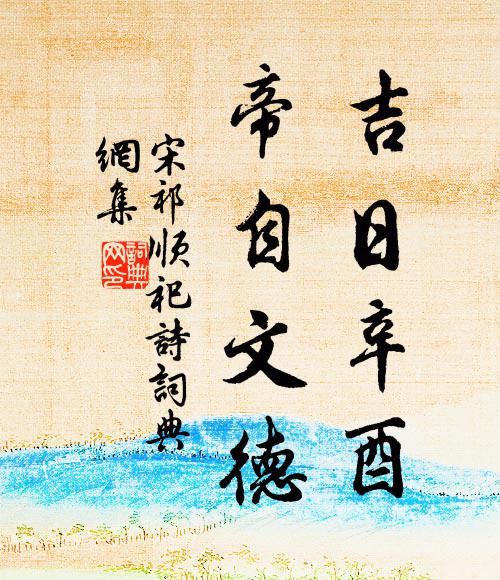 吉日辛酉
帝自文德
宋祁順祀詩詞典
網集
詞典
网印